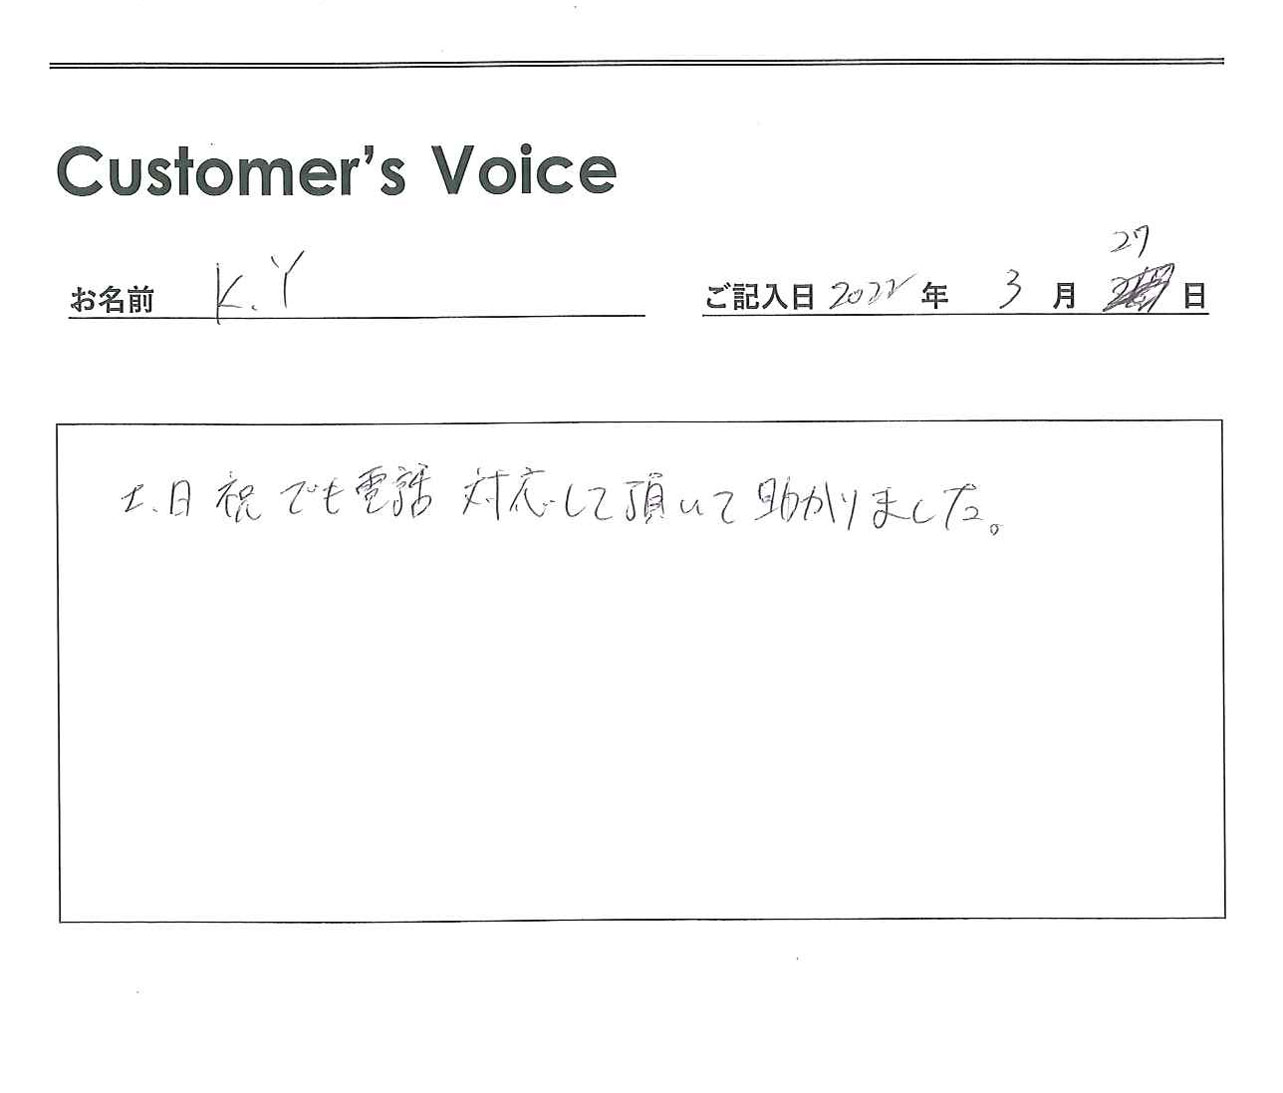 Customer's Voice
お名前 K.Y
ご記入日 2022年 3月 27日
土.日祝でも電話対応して頂いて助かりました。